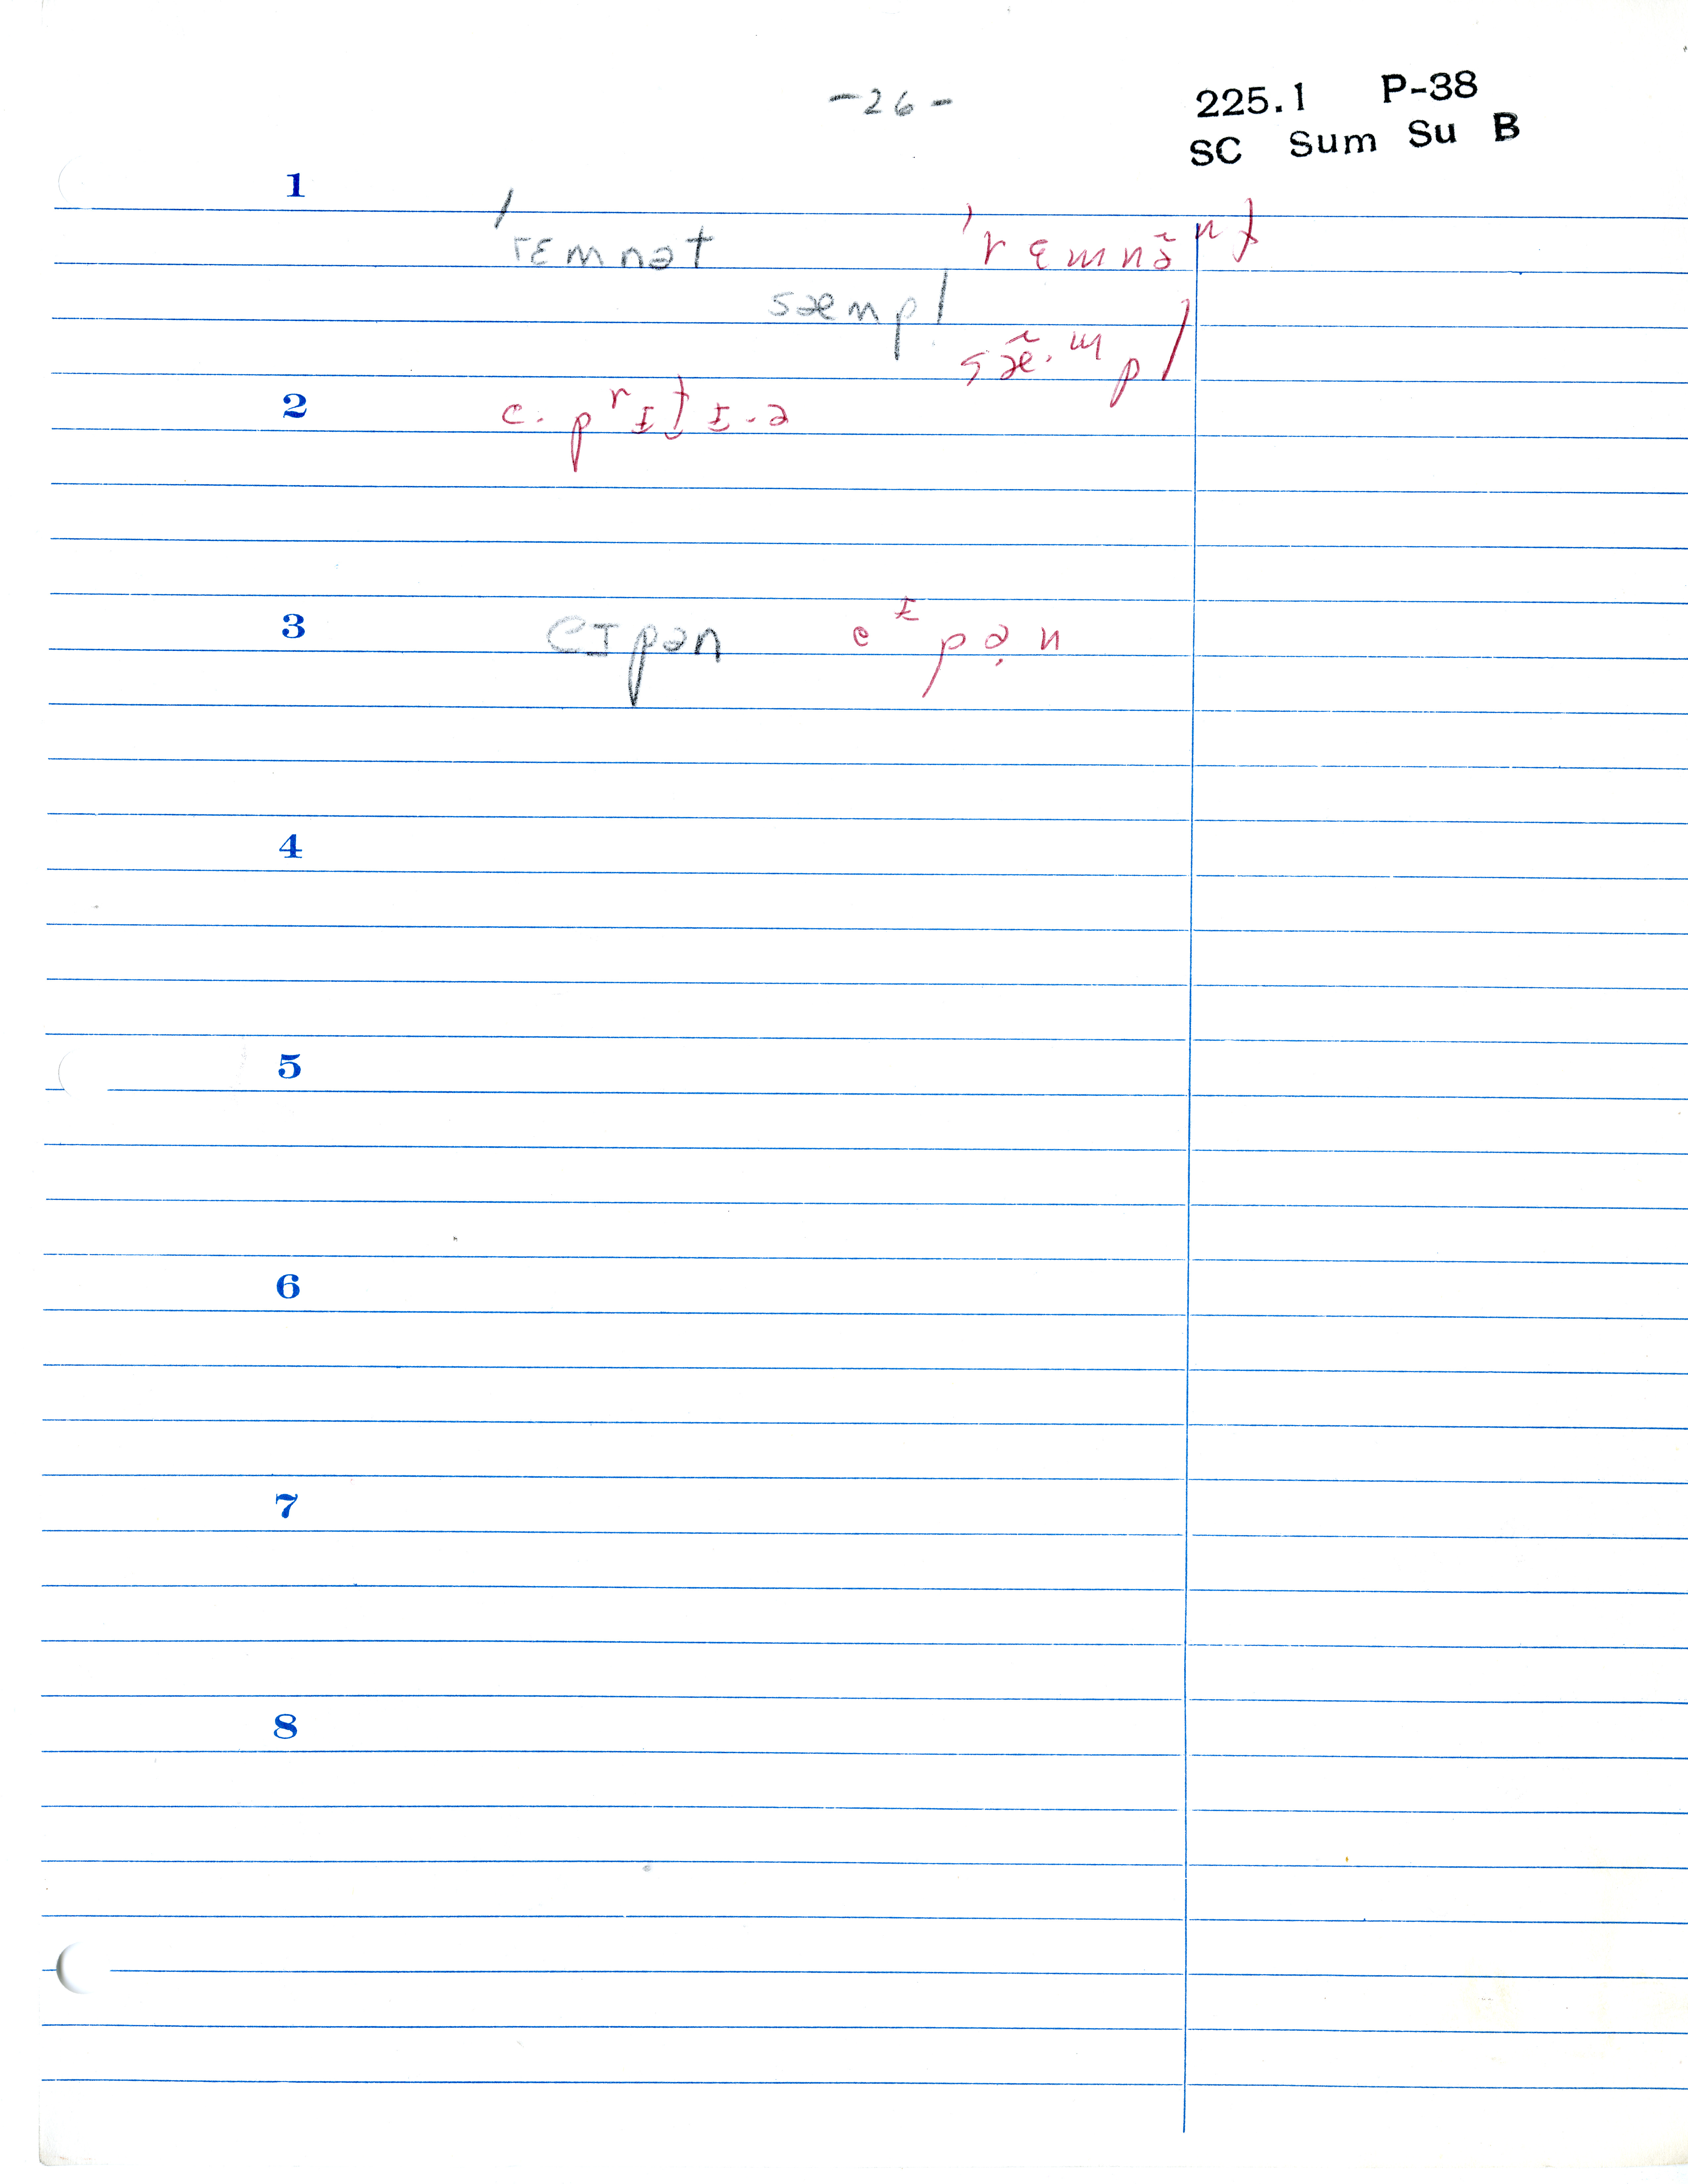 -26-
225.1 P-38
SC Sum Su B
1
ˈrɛmnət ˈrɛmnə̃ⁿt
sæmpl
sæ̃·ᵐpl
2
e·pʳɪt̬ɪ·ə
3
eɪpən eᶦpə̣n
4
5
6
7
8